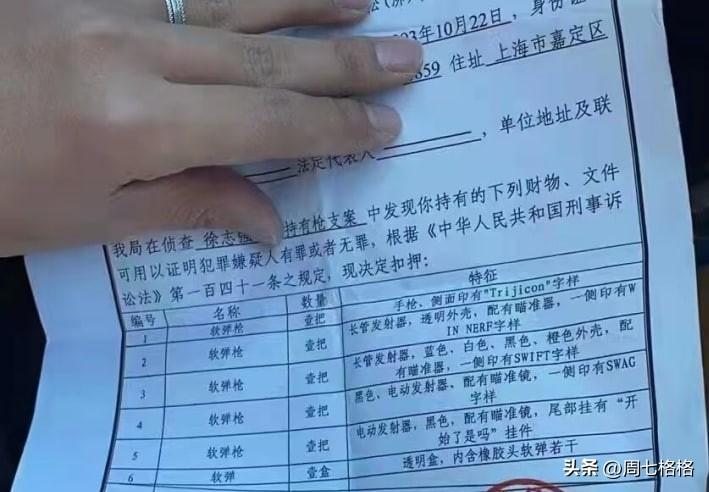 年10月22日，身份证
859 住址 上海市嘉定区
，单位地址及联
法定代表人
我局在侦查 徐志 持有枪支案 中发现你持有的下列财物、文件
可用以证明犯罪嫌疑人有罪或者无罪，根据《中华人民共和国刑事诉
讼法》第一百四十一条之规定，现决定扣押：
编号 名称 数量 特征
1 软弹枪 壹把 手枪、侧面印有"Trijicon"字样
2 软弹枪 壹把 长管发射器，透明外壳，配有瞄准器，一侧印有W
IN NERF字样
3 软弹枪 壹把 长管发射器，蓝色、白色、黑色、橙色外壳，配
有瞄准器，一侧印有SWIFT字样
4 软弹枪 壹把 黑色、电动发射器，配有瞄准镜，一侧印有SWAG
字样
5 软弹枪 壹把 电动发射器，黑色，配有瞄准镜，尾部挂有“开
始了是吗”挂件
6 软弹 壹盒 透明盒，内含橡胶头软弹若干
头条 @周七格格